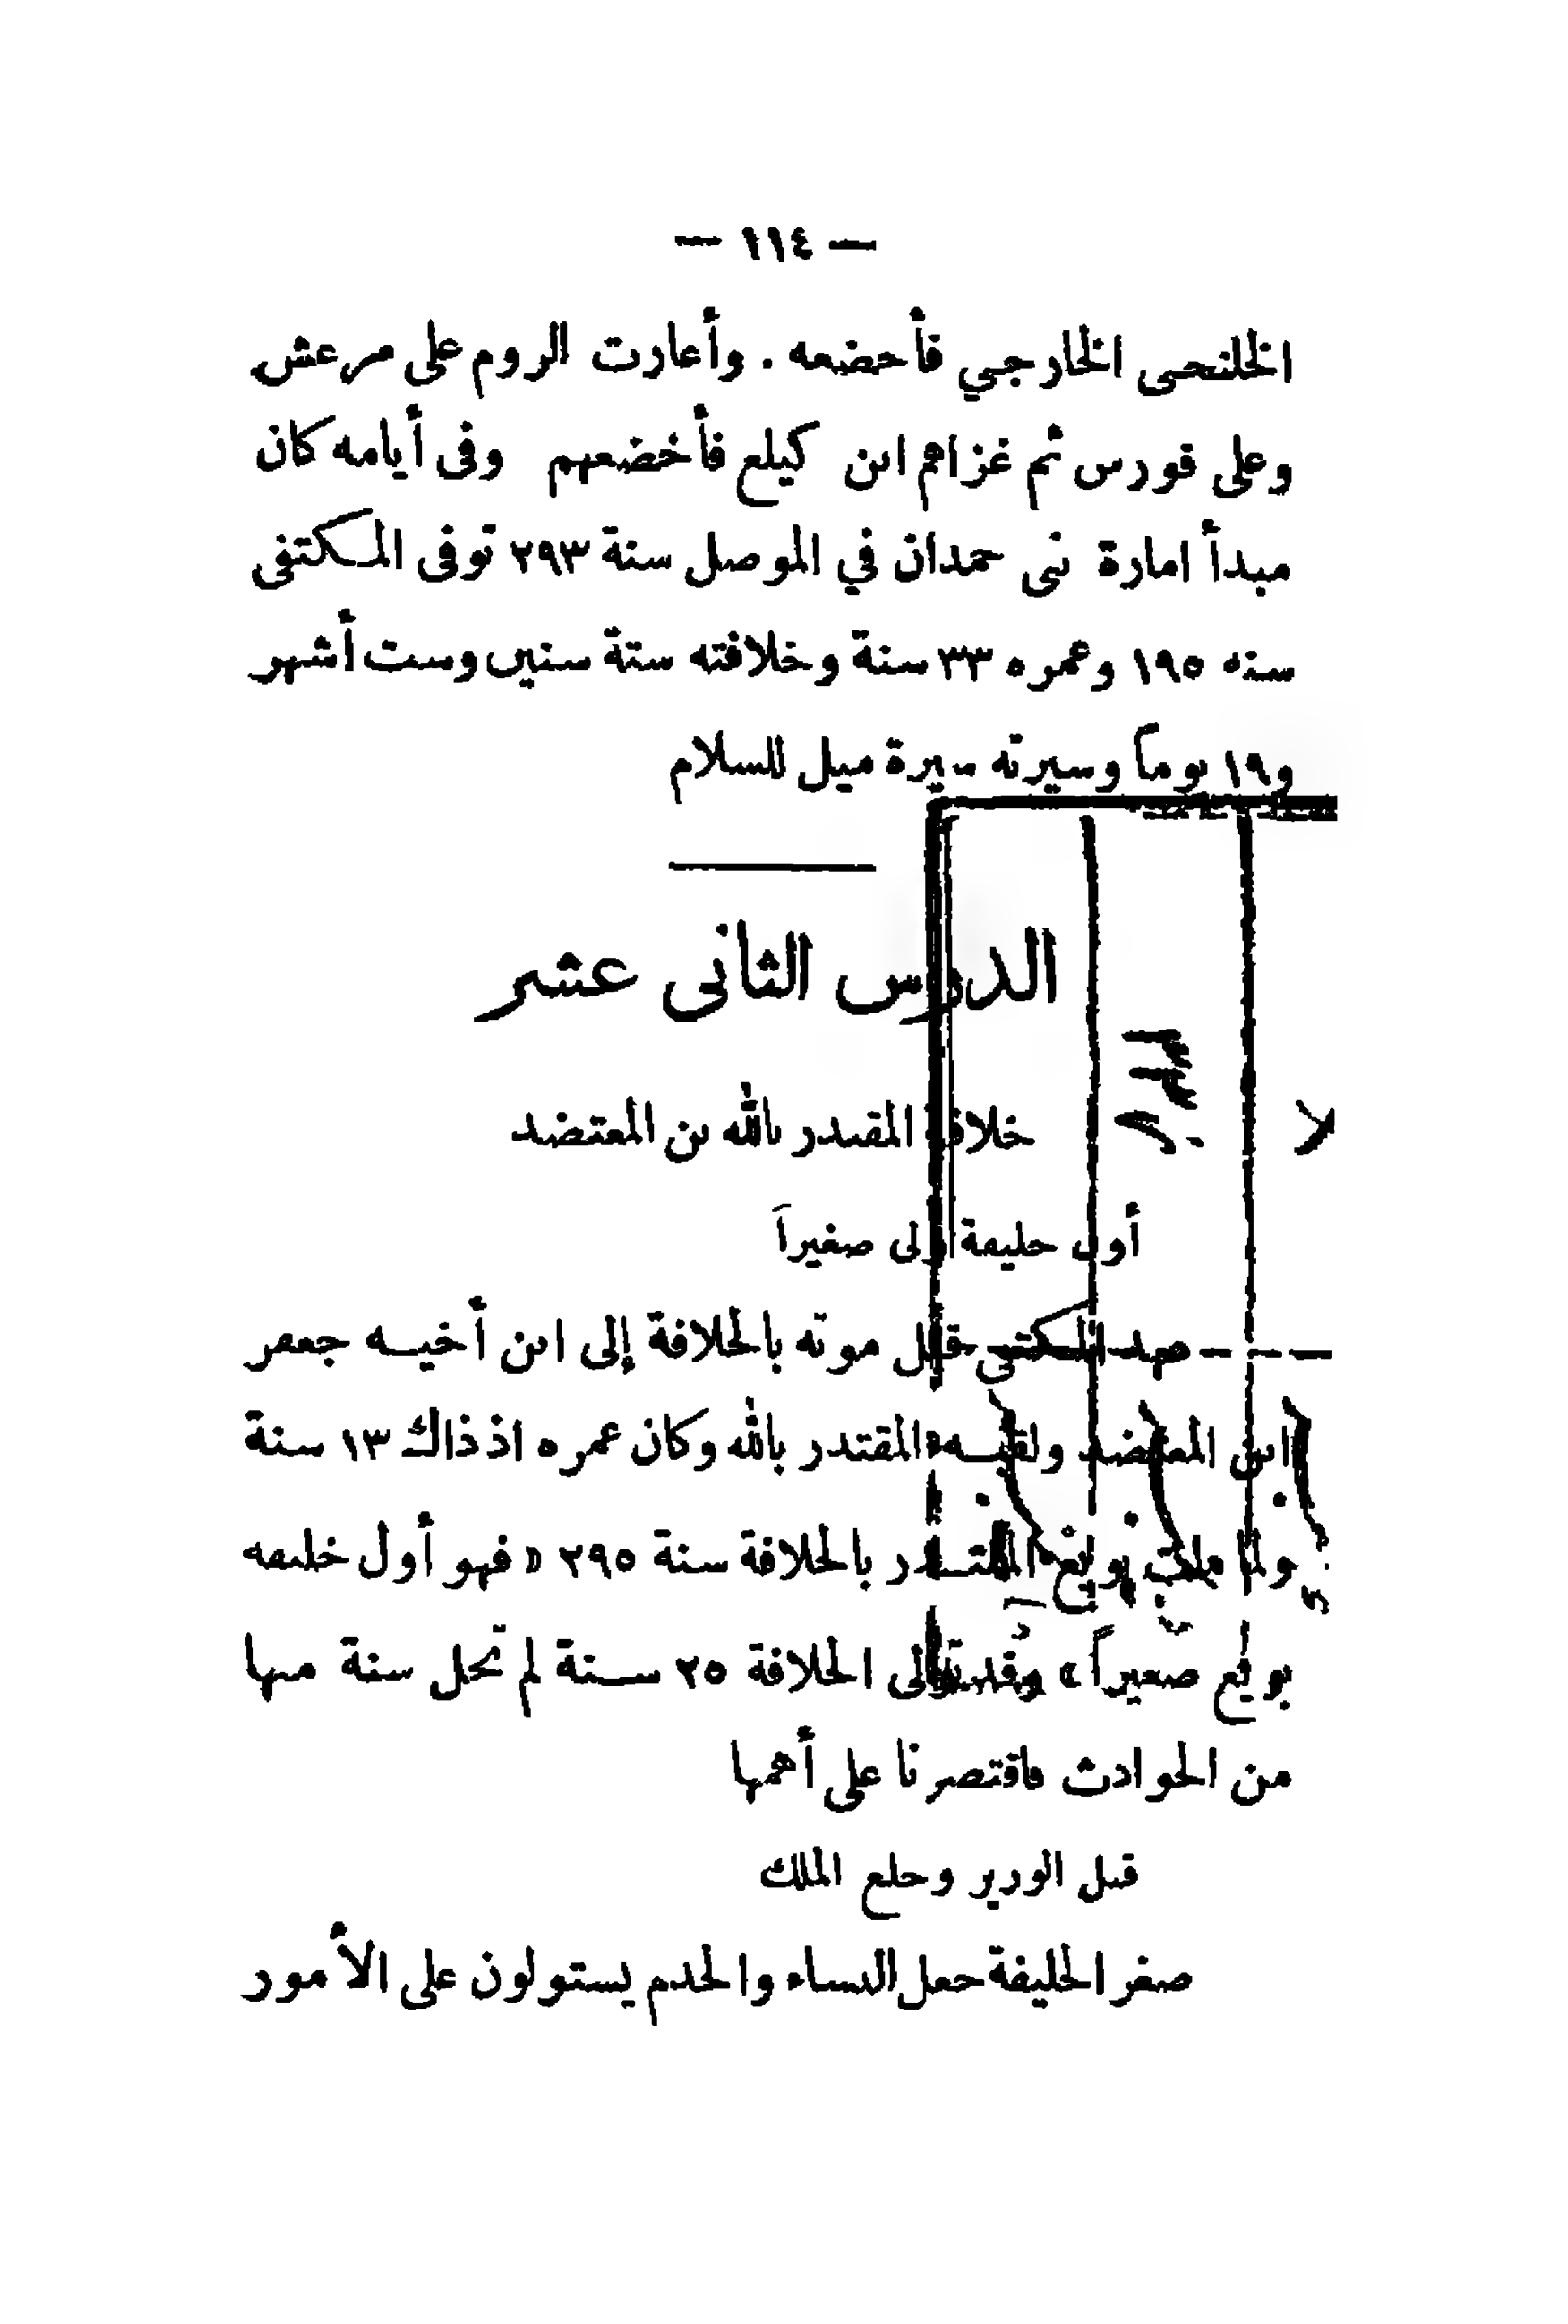 — ١١٤ —
الخلنجى الخارجي فأخضعه . وأغارت الروم على مرعش
وعلى قورس ثم غزاهم ابن كيلع فأخضعهم وفى أيامه كان
مبدأ امارة بنى حمدان في الموصل سنة ٢٩٣ توفى المكتفى
سنه ١٩٥ وعمره ٣٣ سنة وخلافته ستة سنين وست أشهر
و١٩ يوماً وسيرته سيرة ميل للسلام
الدرس الثانى عشر
خلافة المقتدر بالله بن المعتضد
أول خليفة ولى صغيراً
عهد المكتفى قبل موته بالخلافة إلى ابن أخيه جعفر
ابن المعتضد ولقبه المقتدر بالله وكان عمره اذ ذاك ١٣ سنة
ولما مات بويع المقتدر بالخلافة سنة ٢٩٥ « فهو أول خليفه
بويع صغيراً » وقد تولى الخلافة ٢٥ سنة لم تخل سنة منها
من الحوادث فاقتصرنا على أهمها
قتل الوزير وخلع الملك
صغر الخليفة جعل النساء والخدم يستولون على الأمور